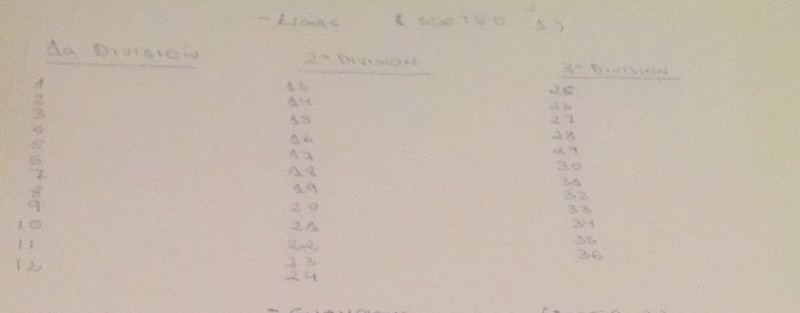 - LIGAS (SORTEO 1)
1a DIVISION
1
2
3
4
5
6
7
8
9
10
11
12
2a DIVISION
13
14
15
16
17
18
19
20
21
22
23
24
3a DIVISION
25
26
27
28
29
30
31
32
33
34
35
36